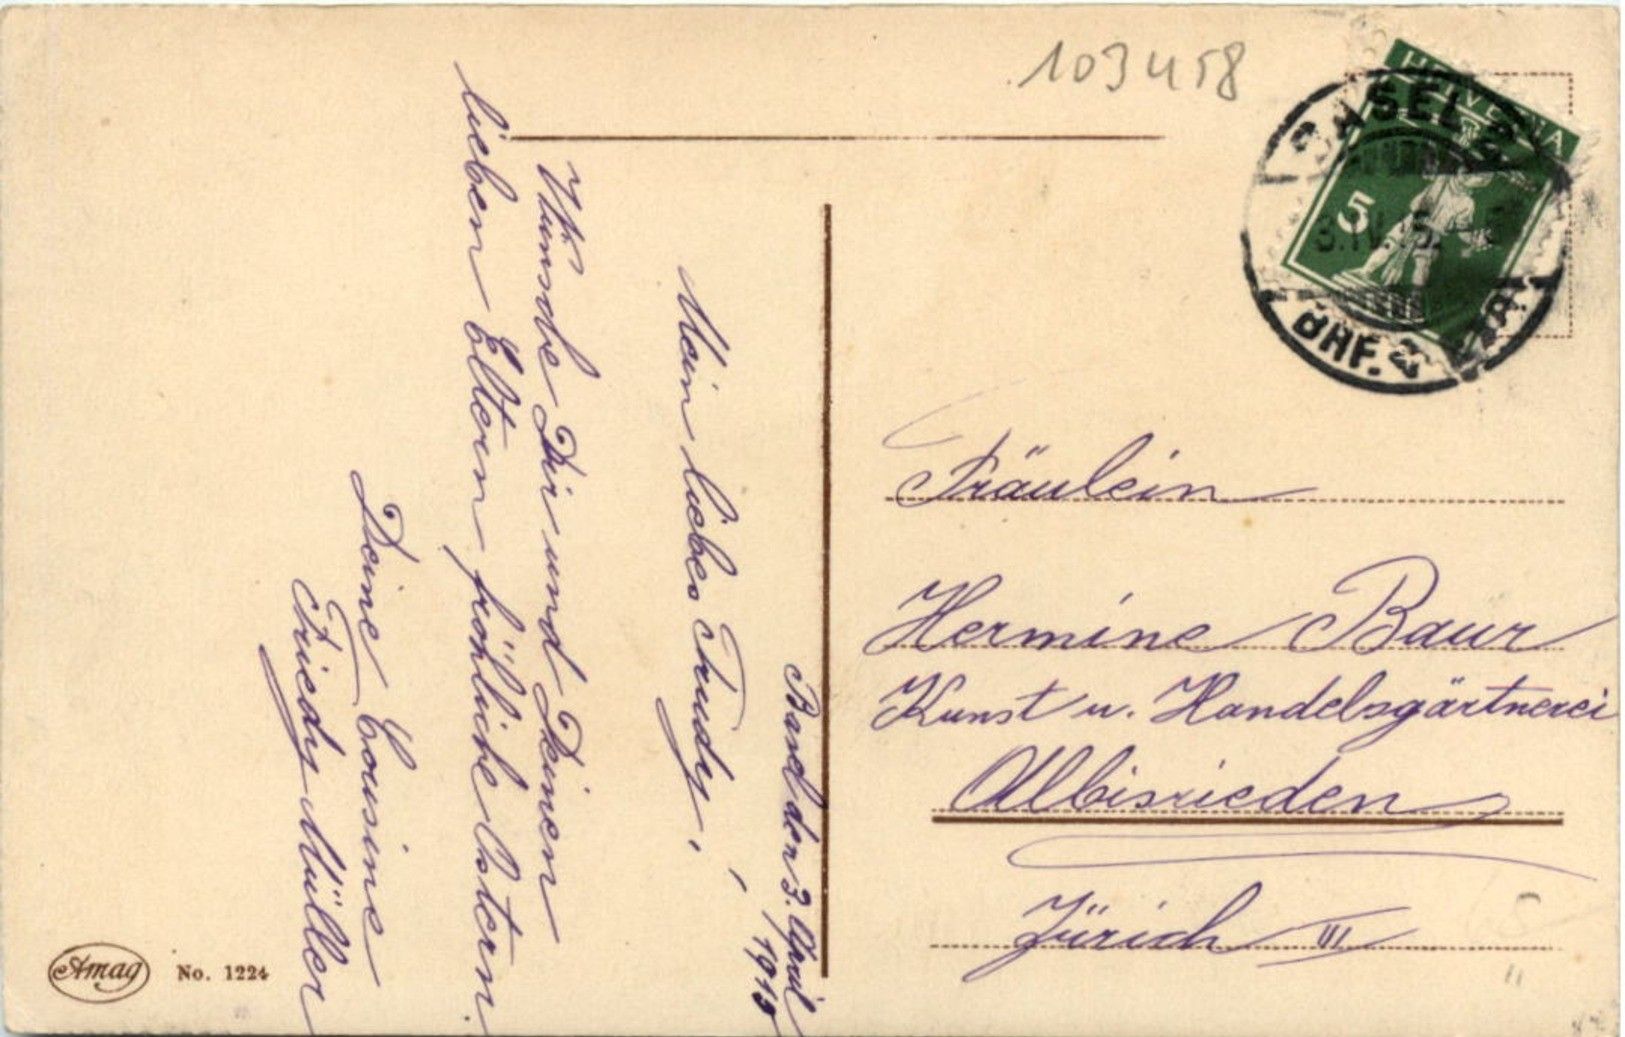 103458
HELVETIA
5
BASEL 2
3.IV.15.
BHF.
Fräulein
Hermine Baur
Kunst u. Handelsgärtnerei
Albisrieden
Zürich III
den 3. April
1915
Mein liebes Trudy,
Wünsche Dir und Deinen
lieben Eltern fröhliche Ostern.
Deine Cousine
Friedy Müller
Amag No. 1224